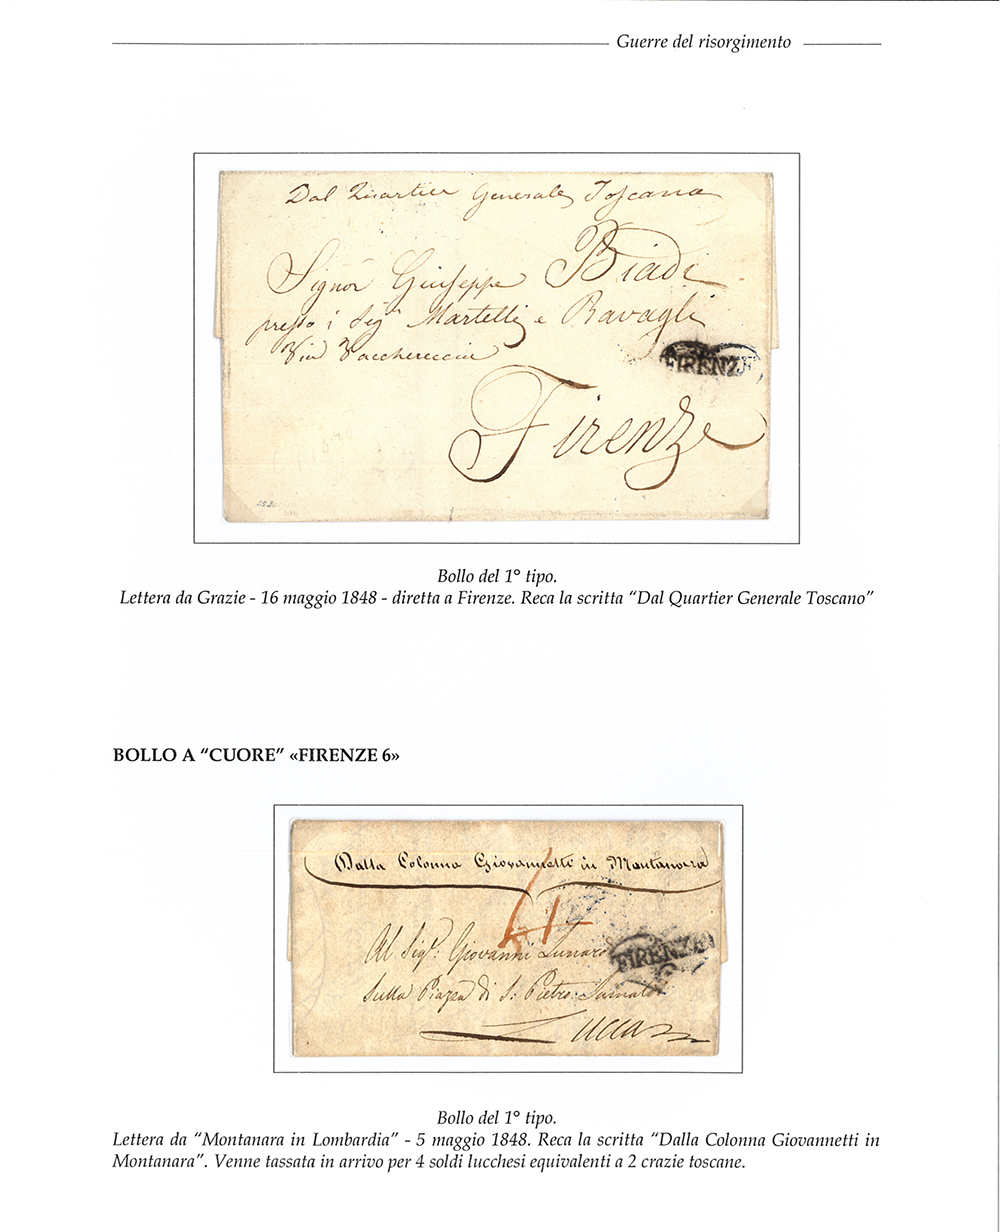 Guerre del risorgimento
Dal Quartier Generale Toscano
Signor Giuseppe Biadi
presso i Sigri Martelli e Ravagli
Via Vacchereccia
FIRENZE
Firenze
Bollo del 1° tipo.
Lettera da Grazie - 16 maggio 1848 - diretta a Firenze. Reca la scritta “Dal Quartier Generale Toscano”
BOLLO A “CUORE” «FIRENZE 6»
Dalla Colonna Giovannetti in Montanara
4
Al Sigr: Giovanni
FIRENZE
Sulla Piazza di S: Pietro
Lucca
Bollo del 1° tipo.
Lettera da “Montanara in Lombardia” - 5 maggio 1848. Reca la scritta “Dalla Colonna Giovannetti in
Montanara”. Venne tassata in arrivo per 4 soldi lucchesi equivalenti a 2 crazie toscane.